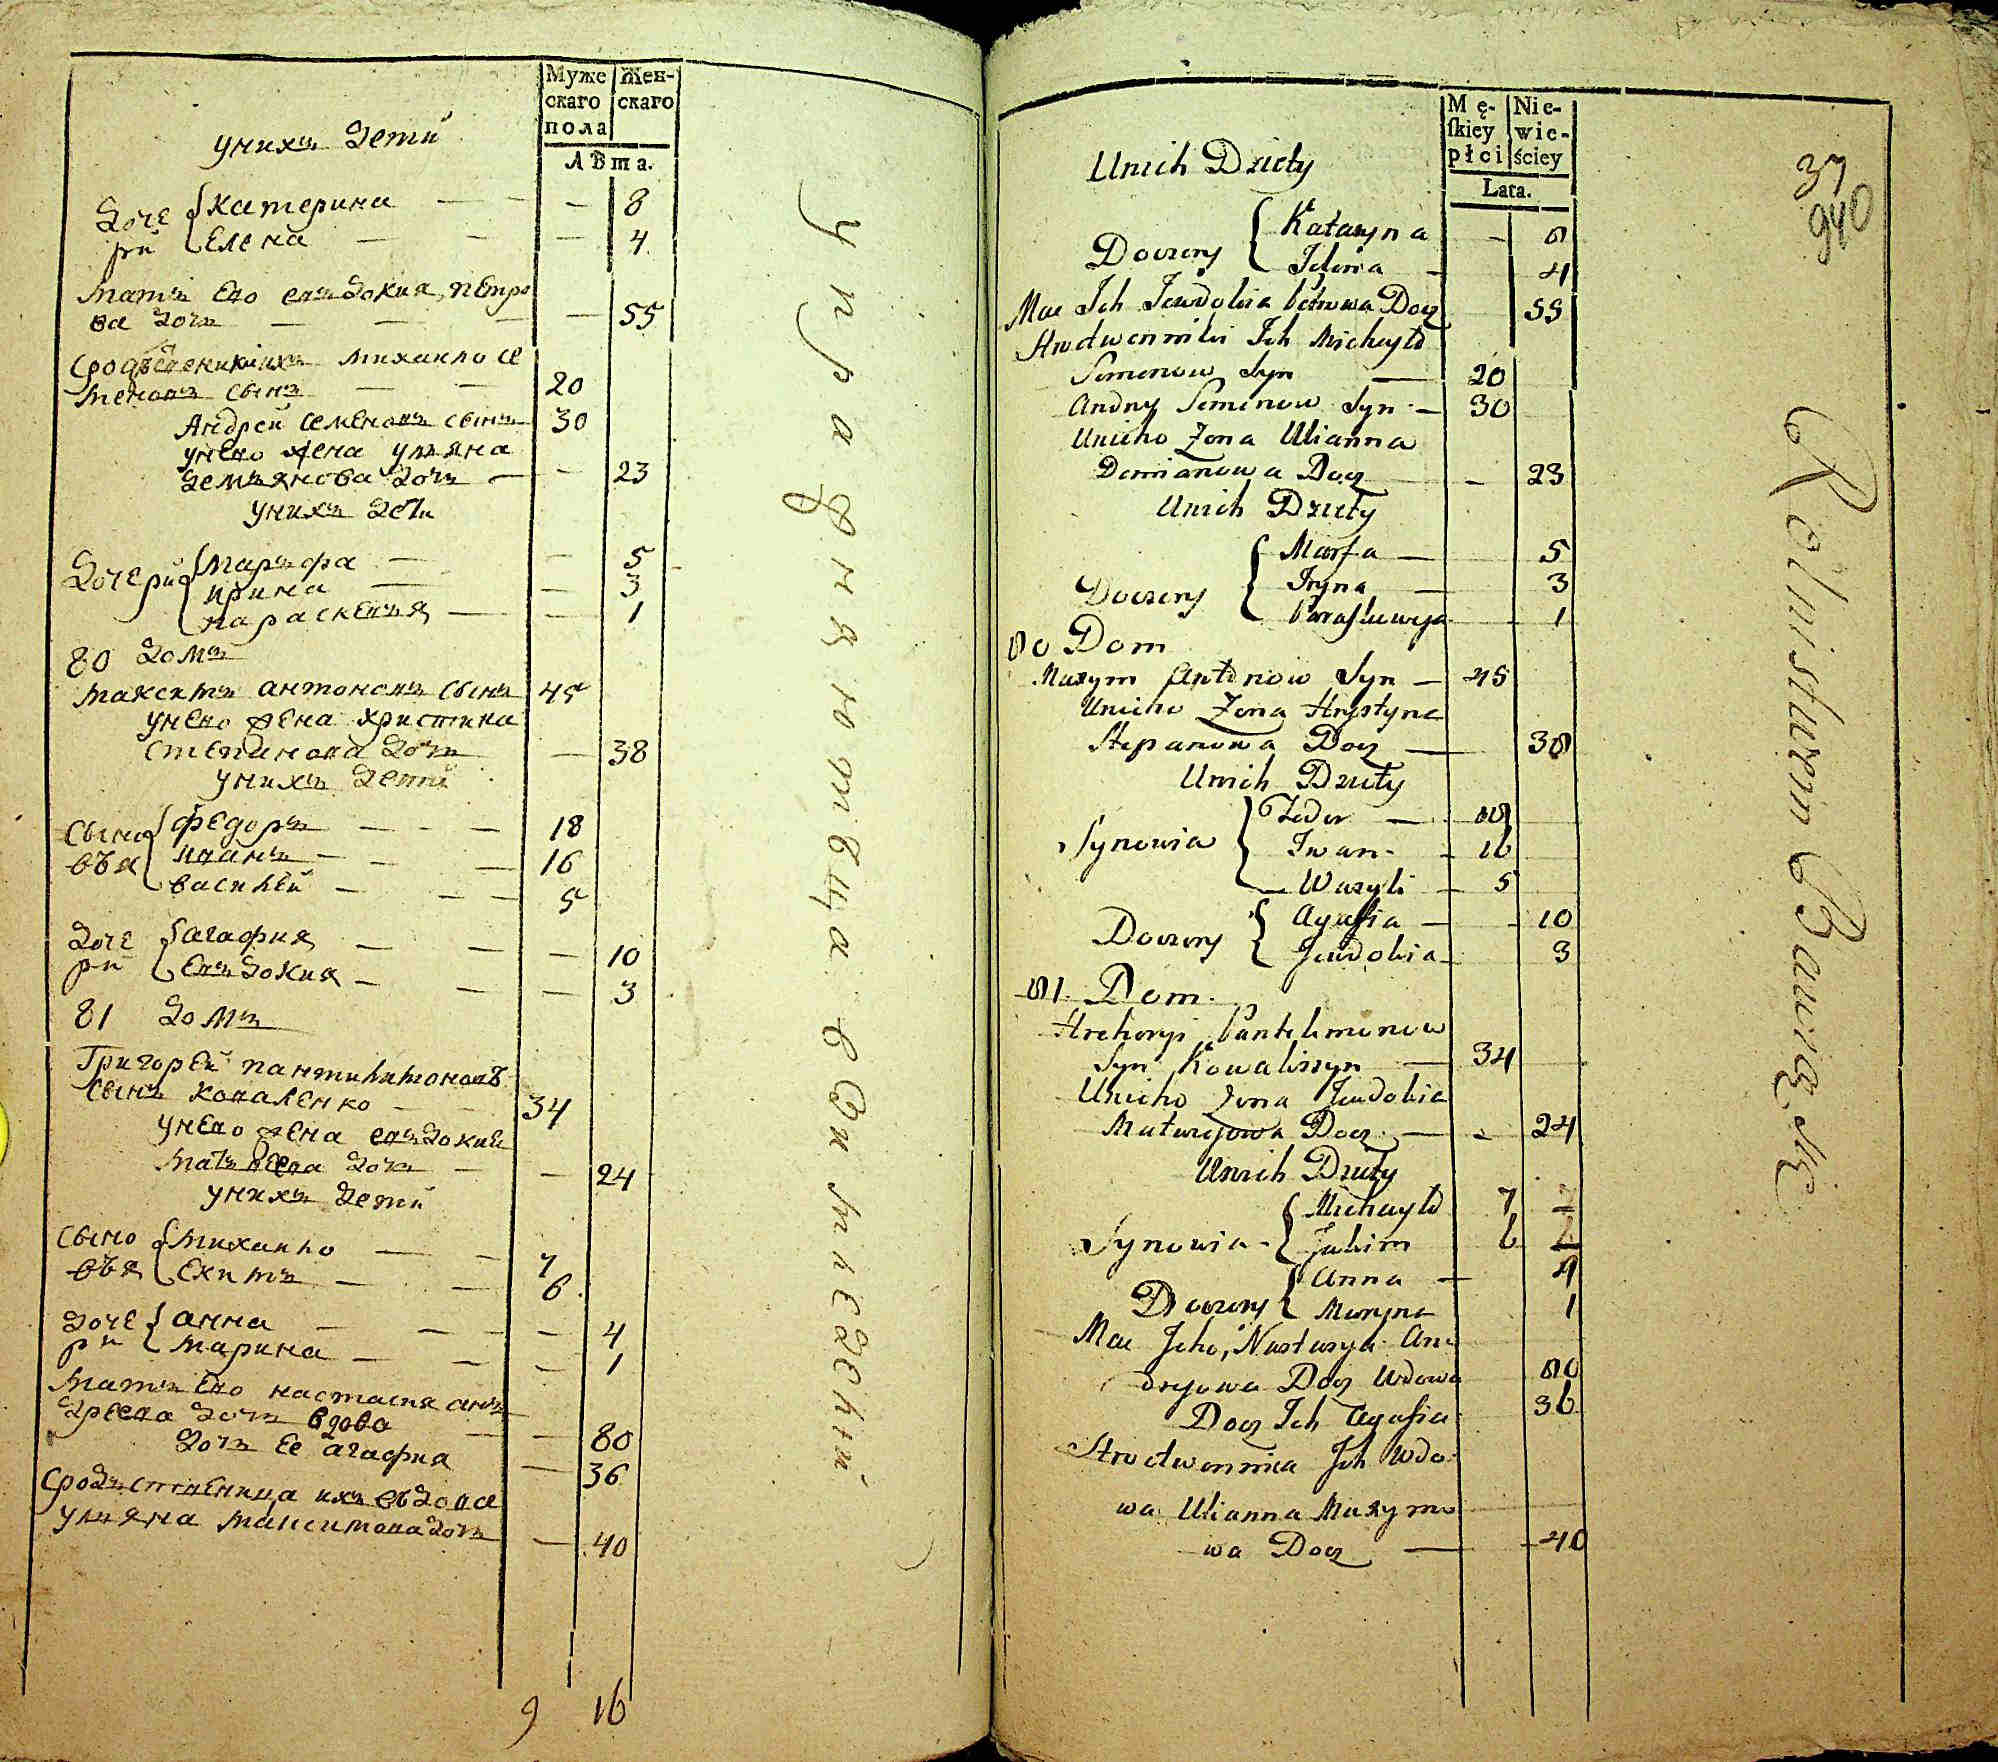 Муже
скаго
пола
Жен-
скаго
Лѣта.
у нихъ дети
доче
ри
Катерина — — 8
Елена — — — 4
мать Ево евъдокия, петро
ва дочь — — — — 55
сродъственникъ ихъ михаило се
меновъ сынъ — — 20
Андрей семеновъ сынъ 30
у нево жена ульяна
демъянова дочь — — 23
у нихъ дети
дочери
маръфа — — 5
ирина — — 3
параскевъя — — 1
80 домъ
максимъ антоновъ сынъ 45
у нево жена христина
степанова дочь — 38
у нихъ дети
сыно
вья
федоръ — — — 18
иванъ — — 16
василей — — — 5
доче
ри
агафия — — — 10
Евъдокия — — — 3
81 домъ
Григорей пантилимоновъ
сынъ коваленко — — 34
у нево жена евъдокия
матвеева дочь — — 24
у нихъ дети
сыно
вья
михаило — — 7
Екимъ — — 6
доче
ри
анна — — — — 4
марина — — — 1
мать Ево настасия анъ
дреева дочь вдова — — 80
дочь Ее агафия — 36
сродъственница ихъ въдова
ульяна максимова дочь — 40
9 16
у праднкютвща в Ви
Mę-
skiey
płci
Nie-
wie-
ściey
Lata.
37
940
Unich Dziety
Doczery
Kataryna — 8
Jelena — 4
Mac Jch Jewdokia Petrowa Docz 55
Srodwennik Jch Michayło
Semenow Syn — 20
Andrey Semenow Syn — 30
Unieho Zona Ulianna
Demianowa Docz — 23
Unich Dziety
Doczery
Marfa — 5
Iryna — 3
Paraskewyia 1
80 Dom
Maxym Antonow Syn — 45
Unieho Zona Hrystyna
Stepanowa Docz — 38
Unich Dziety
Synowia
Fedor — 18
Iwan — 16
Wasyli — 5
Doczery
Agafia — 10
Jewdokia — 3
81. Dom.
Hrehoryi Pantelimonow
Syn Kowaliszyn — 34
Unieho Zona Jewdokia
Matwejowa Docz — 24
Unich Dziety
Synowia
Michayło 7
Jakim 6
Doczery
Anna — 4
Maryna 1
Mac Jeho, Nastasya An-
drejowa Docz Wdowa 80
Docz Jch Agafia 36
Srodwennica Jch Wdo-
wa Ulianna Maxymo
wa Docz — 40